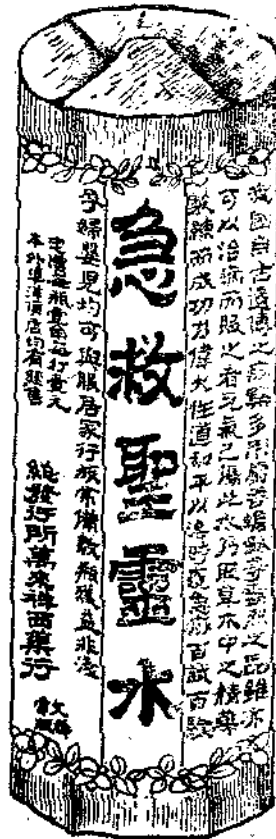 我國自古遺傳之痧藥多用麝香蟾酥等劇烈之品雖亦
可以治病而服之者元氣已傷此水乃取草木中之精藥
煉而成功力偉大性道和平以治時疫急痧百試百驗
急救聖靈水
孕婦嬰兒均可與服居家行旅常備數瓶獲益非淺
定價每瓶壹角每打壹元
本外埠洋廣店均有經售
總發行所萬來祥西藥行